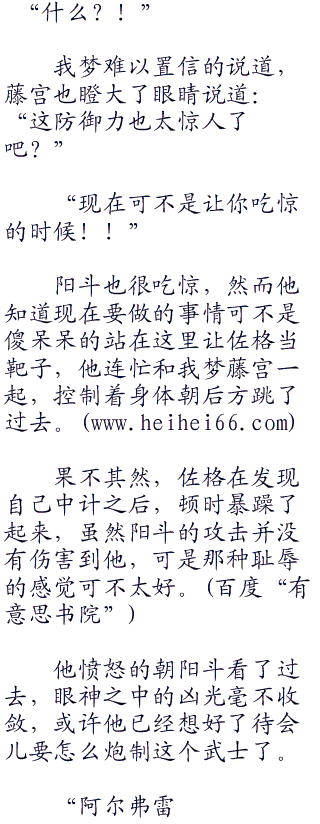 “什么？！”
我梦难以置信的说道，
藤宫也瞪大了眼睛说道：
“这防御力也太惊人了
吧？”
“现在可不是让你吃惊
的时候！！”
阳斗也很吃惊，然而他
知道现在要做的事情可不是
傻呆呆的站在这里让佐格当
靶子，他连忙和我梦藤宫一
起，控制着身体朝后方跳了
过去。(www.heihei66.com)
果不其然，佐格在发现
自己中计之后，顿时暴躁了
起来，虽然阳斗的攻击并没
有伤害到他，可是那种耻辱
的感觉可不太好。(百度“有
意思书院”)
他愤怒的朝阳斗看了过
去，眼神之中的凶光毫不收
敛，或许他已经想好了待会
儿要怎么炮制这个武士了。
“阿尔弗雷